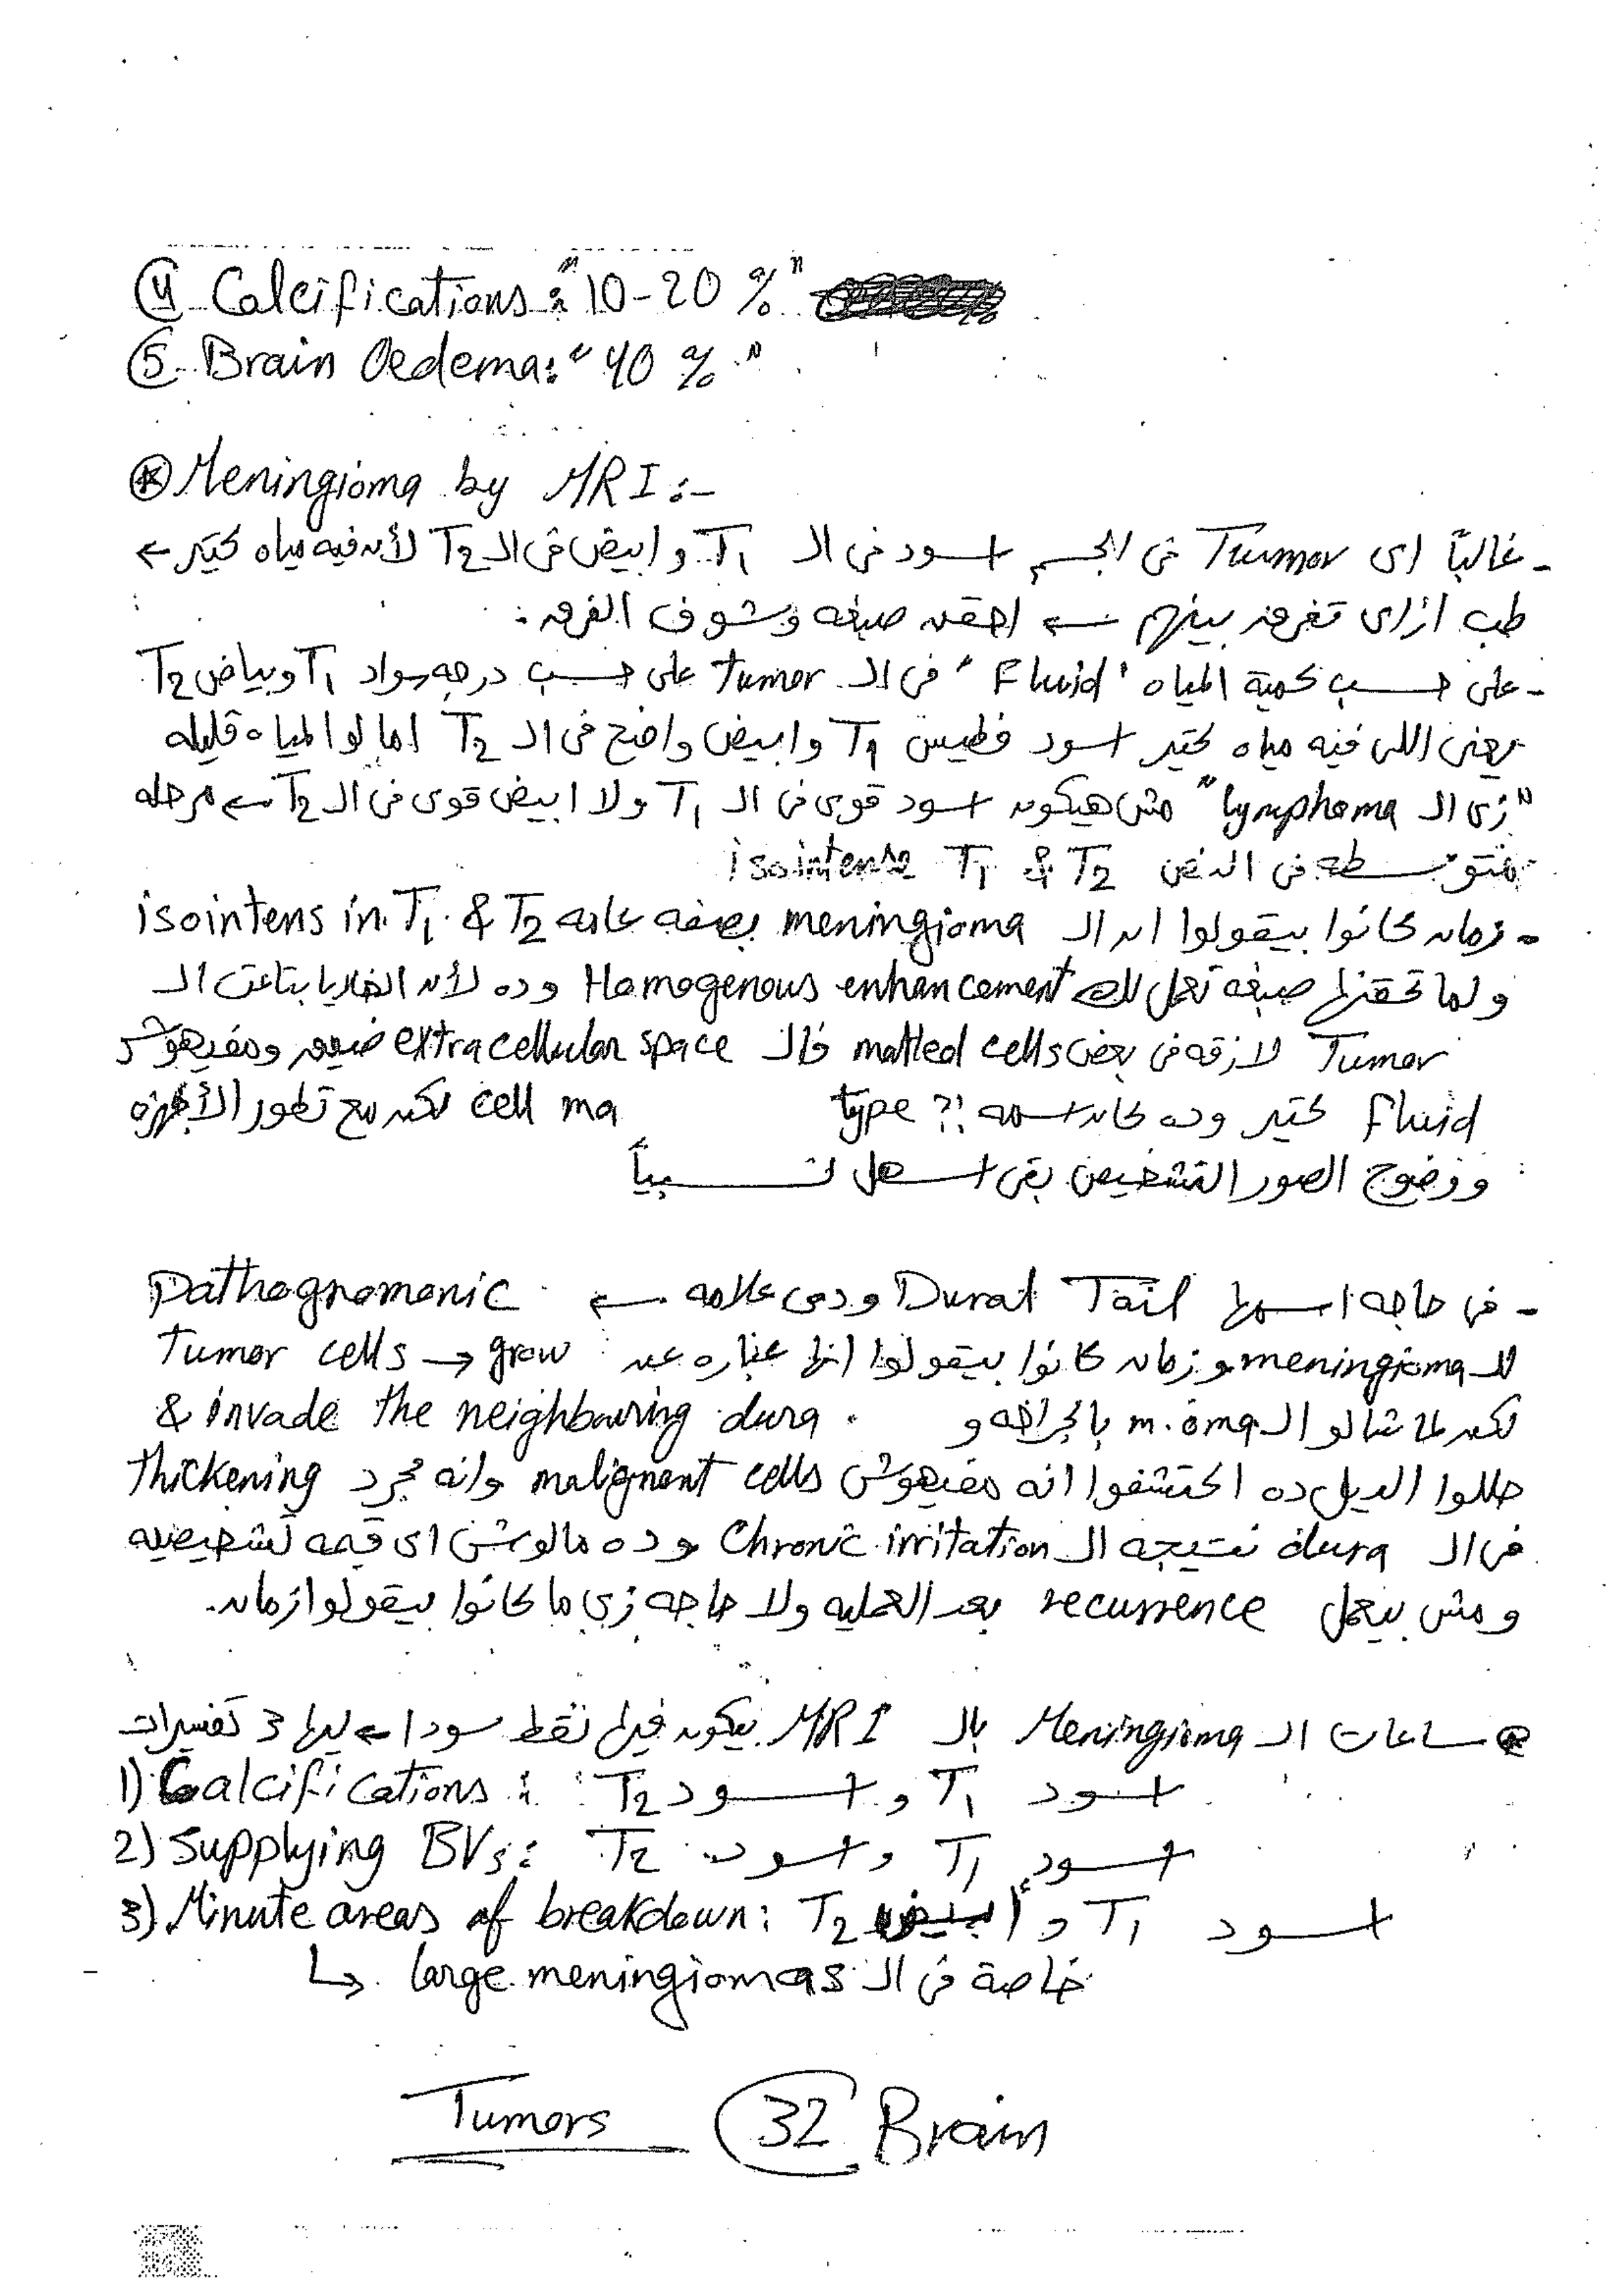 ④ Calcifications: "10-20 %"
⑤ Brain Oedema: "40 %"
⊛ Meningioma by MRI :-
- غالباً اى Tumor فى الجسم اسود فى الـ T1 و ابيض فى الـ T2 لأنه فيه مياه كتير ←
طب ازاى تفرق بينهم ← احقن صبغه وشوف الفرق :
- على حسب كمية المياه "Fluid" فى الـ tumor على حسب درجه سواد T1 وبياض T2
يعنى اللى فيه مياه كتير اسود فطيس T1 و ابيض واضح فى الـ T2 اما لو المياه قليله
"زى الـ lymphoma" مش هيكون اسود قوى فى الـ T1 ولا ابيض قوى فى الـ T2 ← مرحله
متوسطه فى النص isointense T1 & T2
- زمان كانوا بيقولوا ان الـ meningioma بصفه عامه isointens in T1 & T2
و لما تحقنها صبغه تعمل لك Homogenous enhancement وده لأن الخلايا بتاعت الـ
Tumor لازقه فى بعض matled cells فالـ extracellular space ضيق ومفيهوش
Fluid كتير وده كان اسمه type ?! cell ma لكن مع تطور الأجهزه
ووضوح الصور التشخيص بقى اسهل نسبياً
- فى حاجه اسمها Dural Tail ودى علامه ← Pathognomonic
للـ meningioma و زمان كانوا بيقولوا انها عباره عن Tumor cells → grow
& invade the neighbouring dura . لكن لما شالو الـ m.oma بالجراحه و
حللوا الديل ده اكتشفوا انه مفيهوش malignant cells وانه مجرد thickening
فى الـ dura نتيجه الـ Chronic irritation وده مالوش اى قيمه تشخيصيه
و مش بيعمل recurrence بعد العمليه ولا حاجه زى ما كانوا بيقولوا زمان.
⊛ ساعات الـ Meningioma بالـ MRI بيكون فيها نقط سودا ← ليها 3 تفسيرات
1) Calcifications : اسود T1 و اسود T2
2) Supplying BVs : اسود T1 و اسود T2
3) Minute areas of breakdown : اسود T1 و أبيض T2
↳ خاصة فى الـ large meningiomas
Tumors 32 Brain